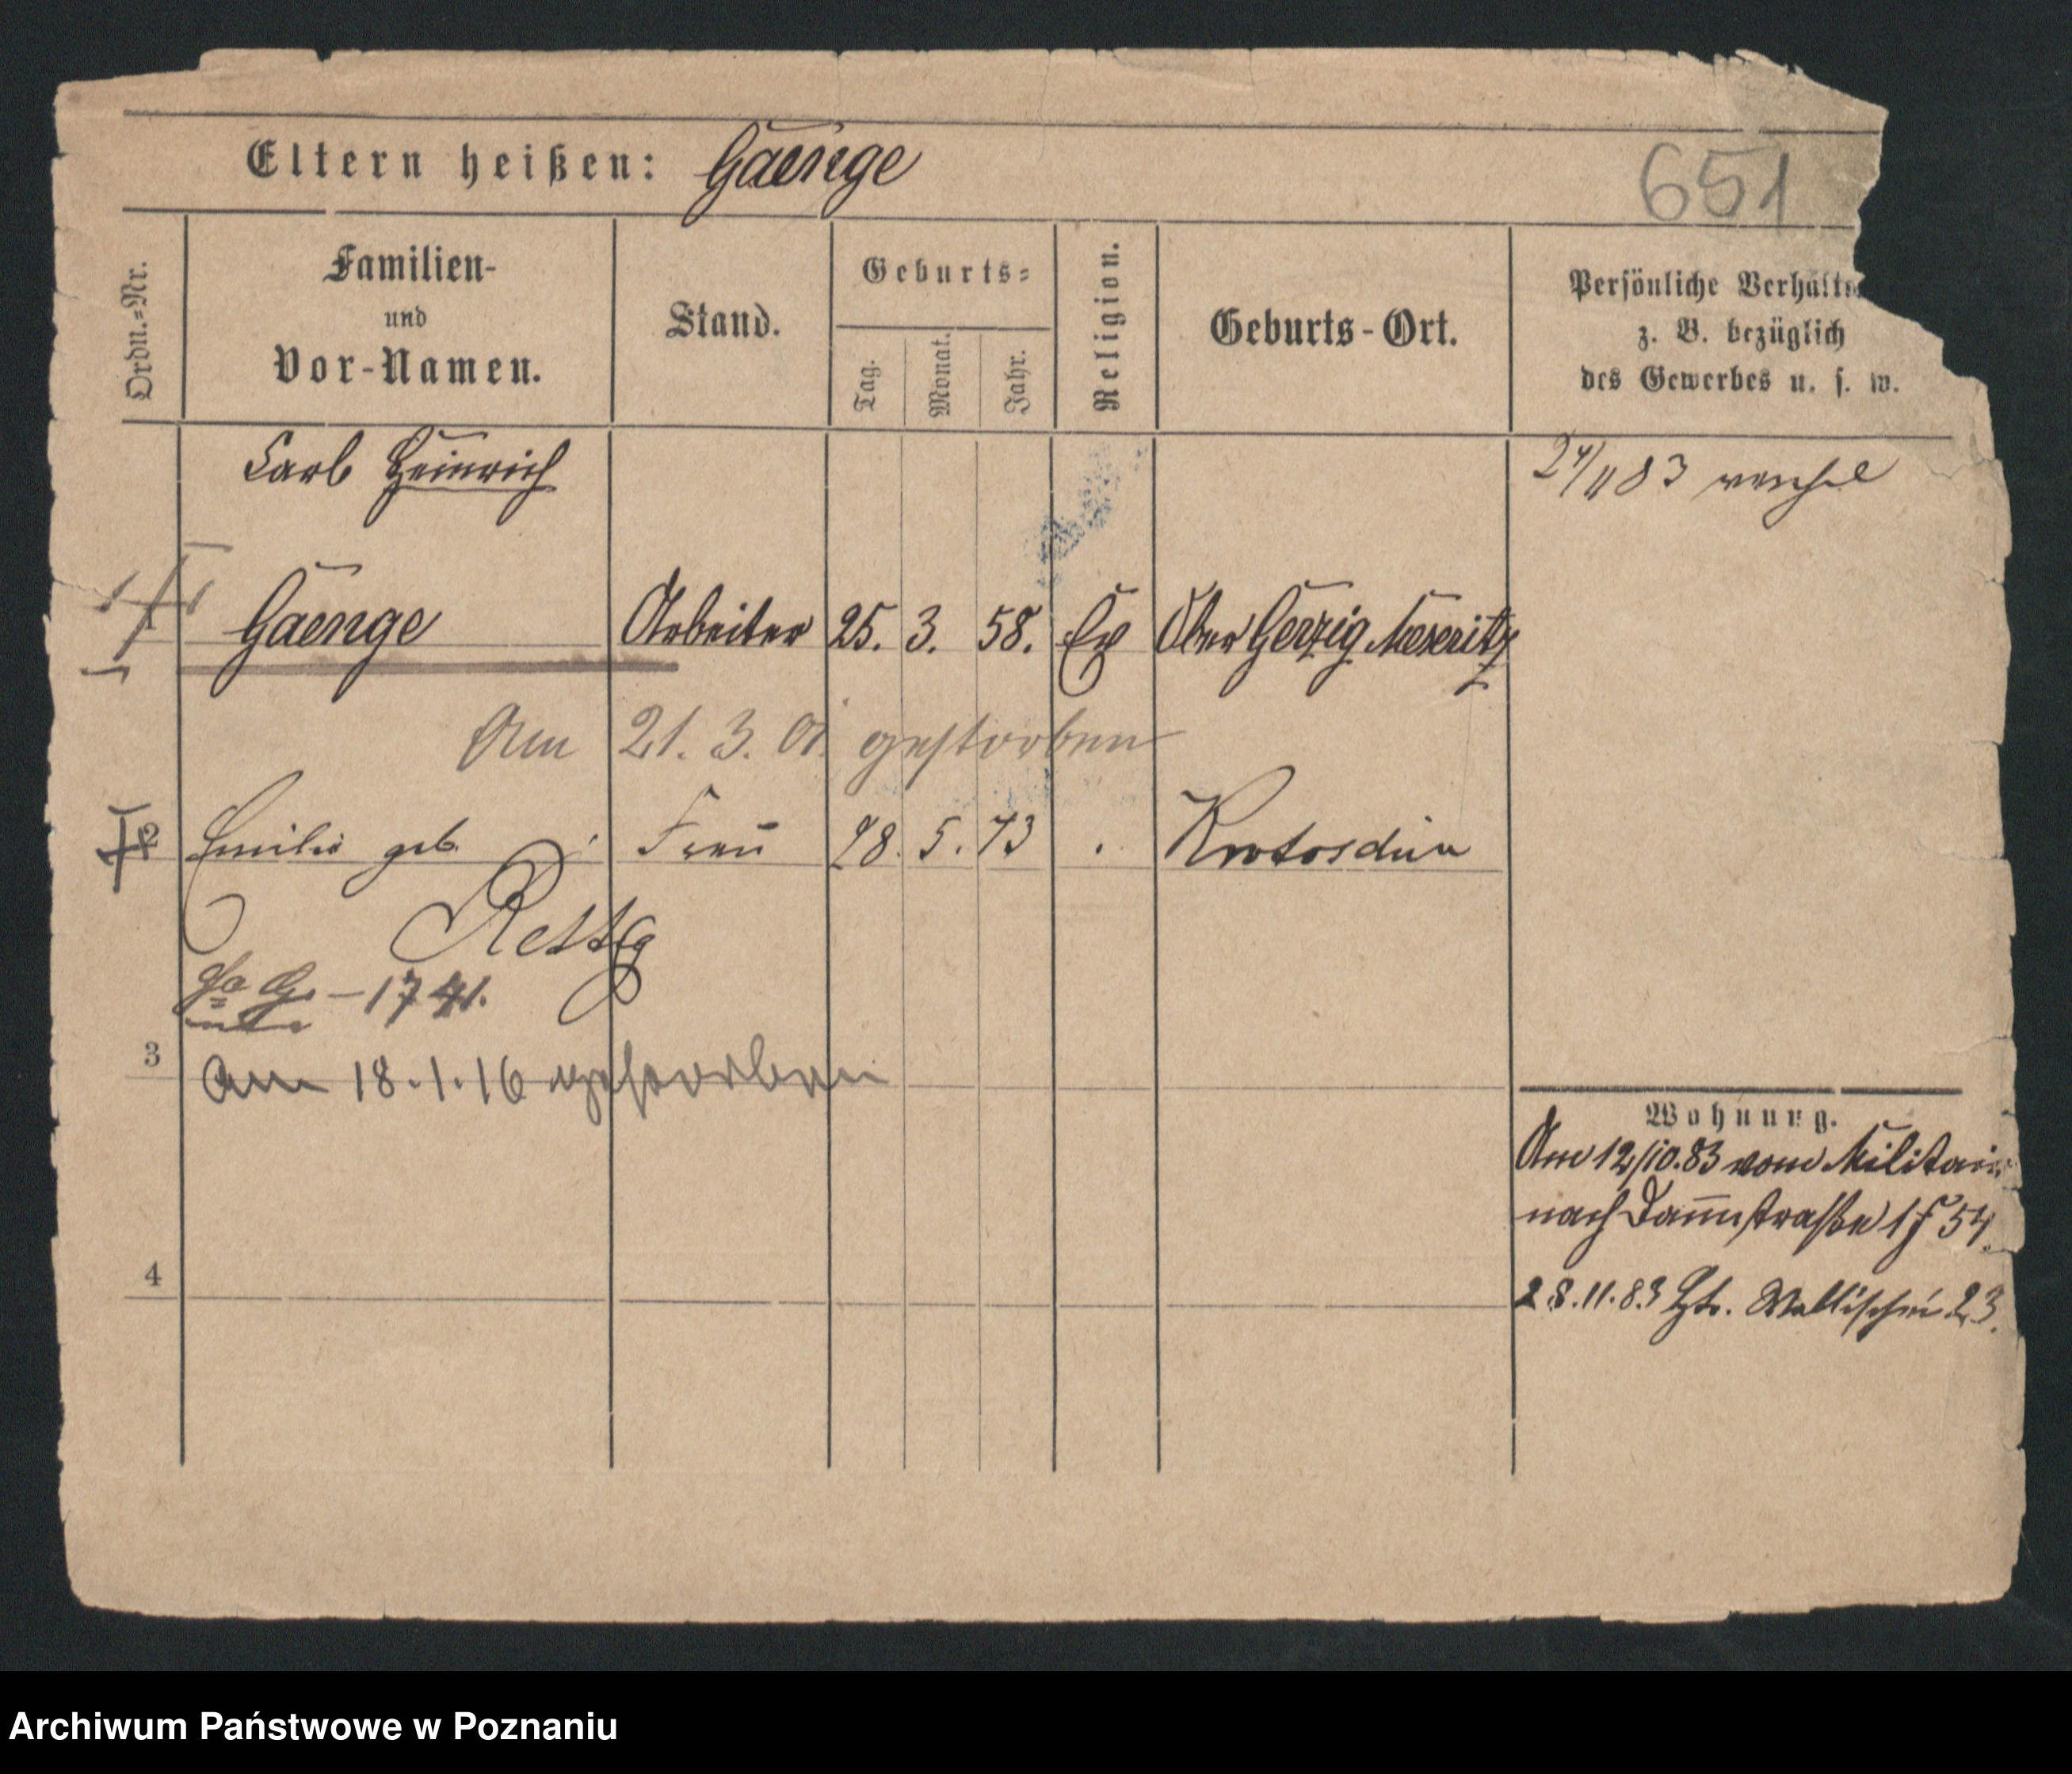 Eltern heißen: Gaenge
651
Ordn.-Nr.
Familien-
und
Vor-Namen.
Stand.
Geburts-
Tag.
Monat.
Jahr.
Religion.
Geburts-Ort.
Persönliche Verhältn
z. B. bezüglich
des Gewerbes u. s. w.
Carl Heinrich
24/11 83
1 Gaenge Arbeiter 25. 3. 58. Ev Ober Gerzig Meseritz
Am 21. 3. 01 gestorben
2 Emilie geb. Frau 28. 5. 73 Krotoschin
Rettig
1741.
3 am 18.1.16 gestorben
Wohnung.
Am 12/10.83 vom Militair
nach Dammstraße 1 f 54.
28.11.83 Wallischei 23.
4
Archiwum Państwowe w Poznaniu